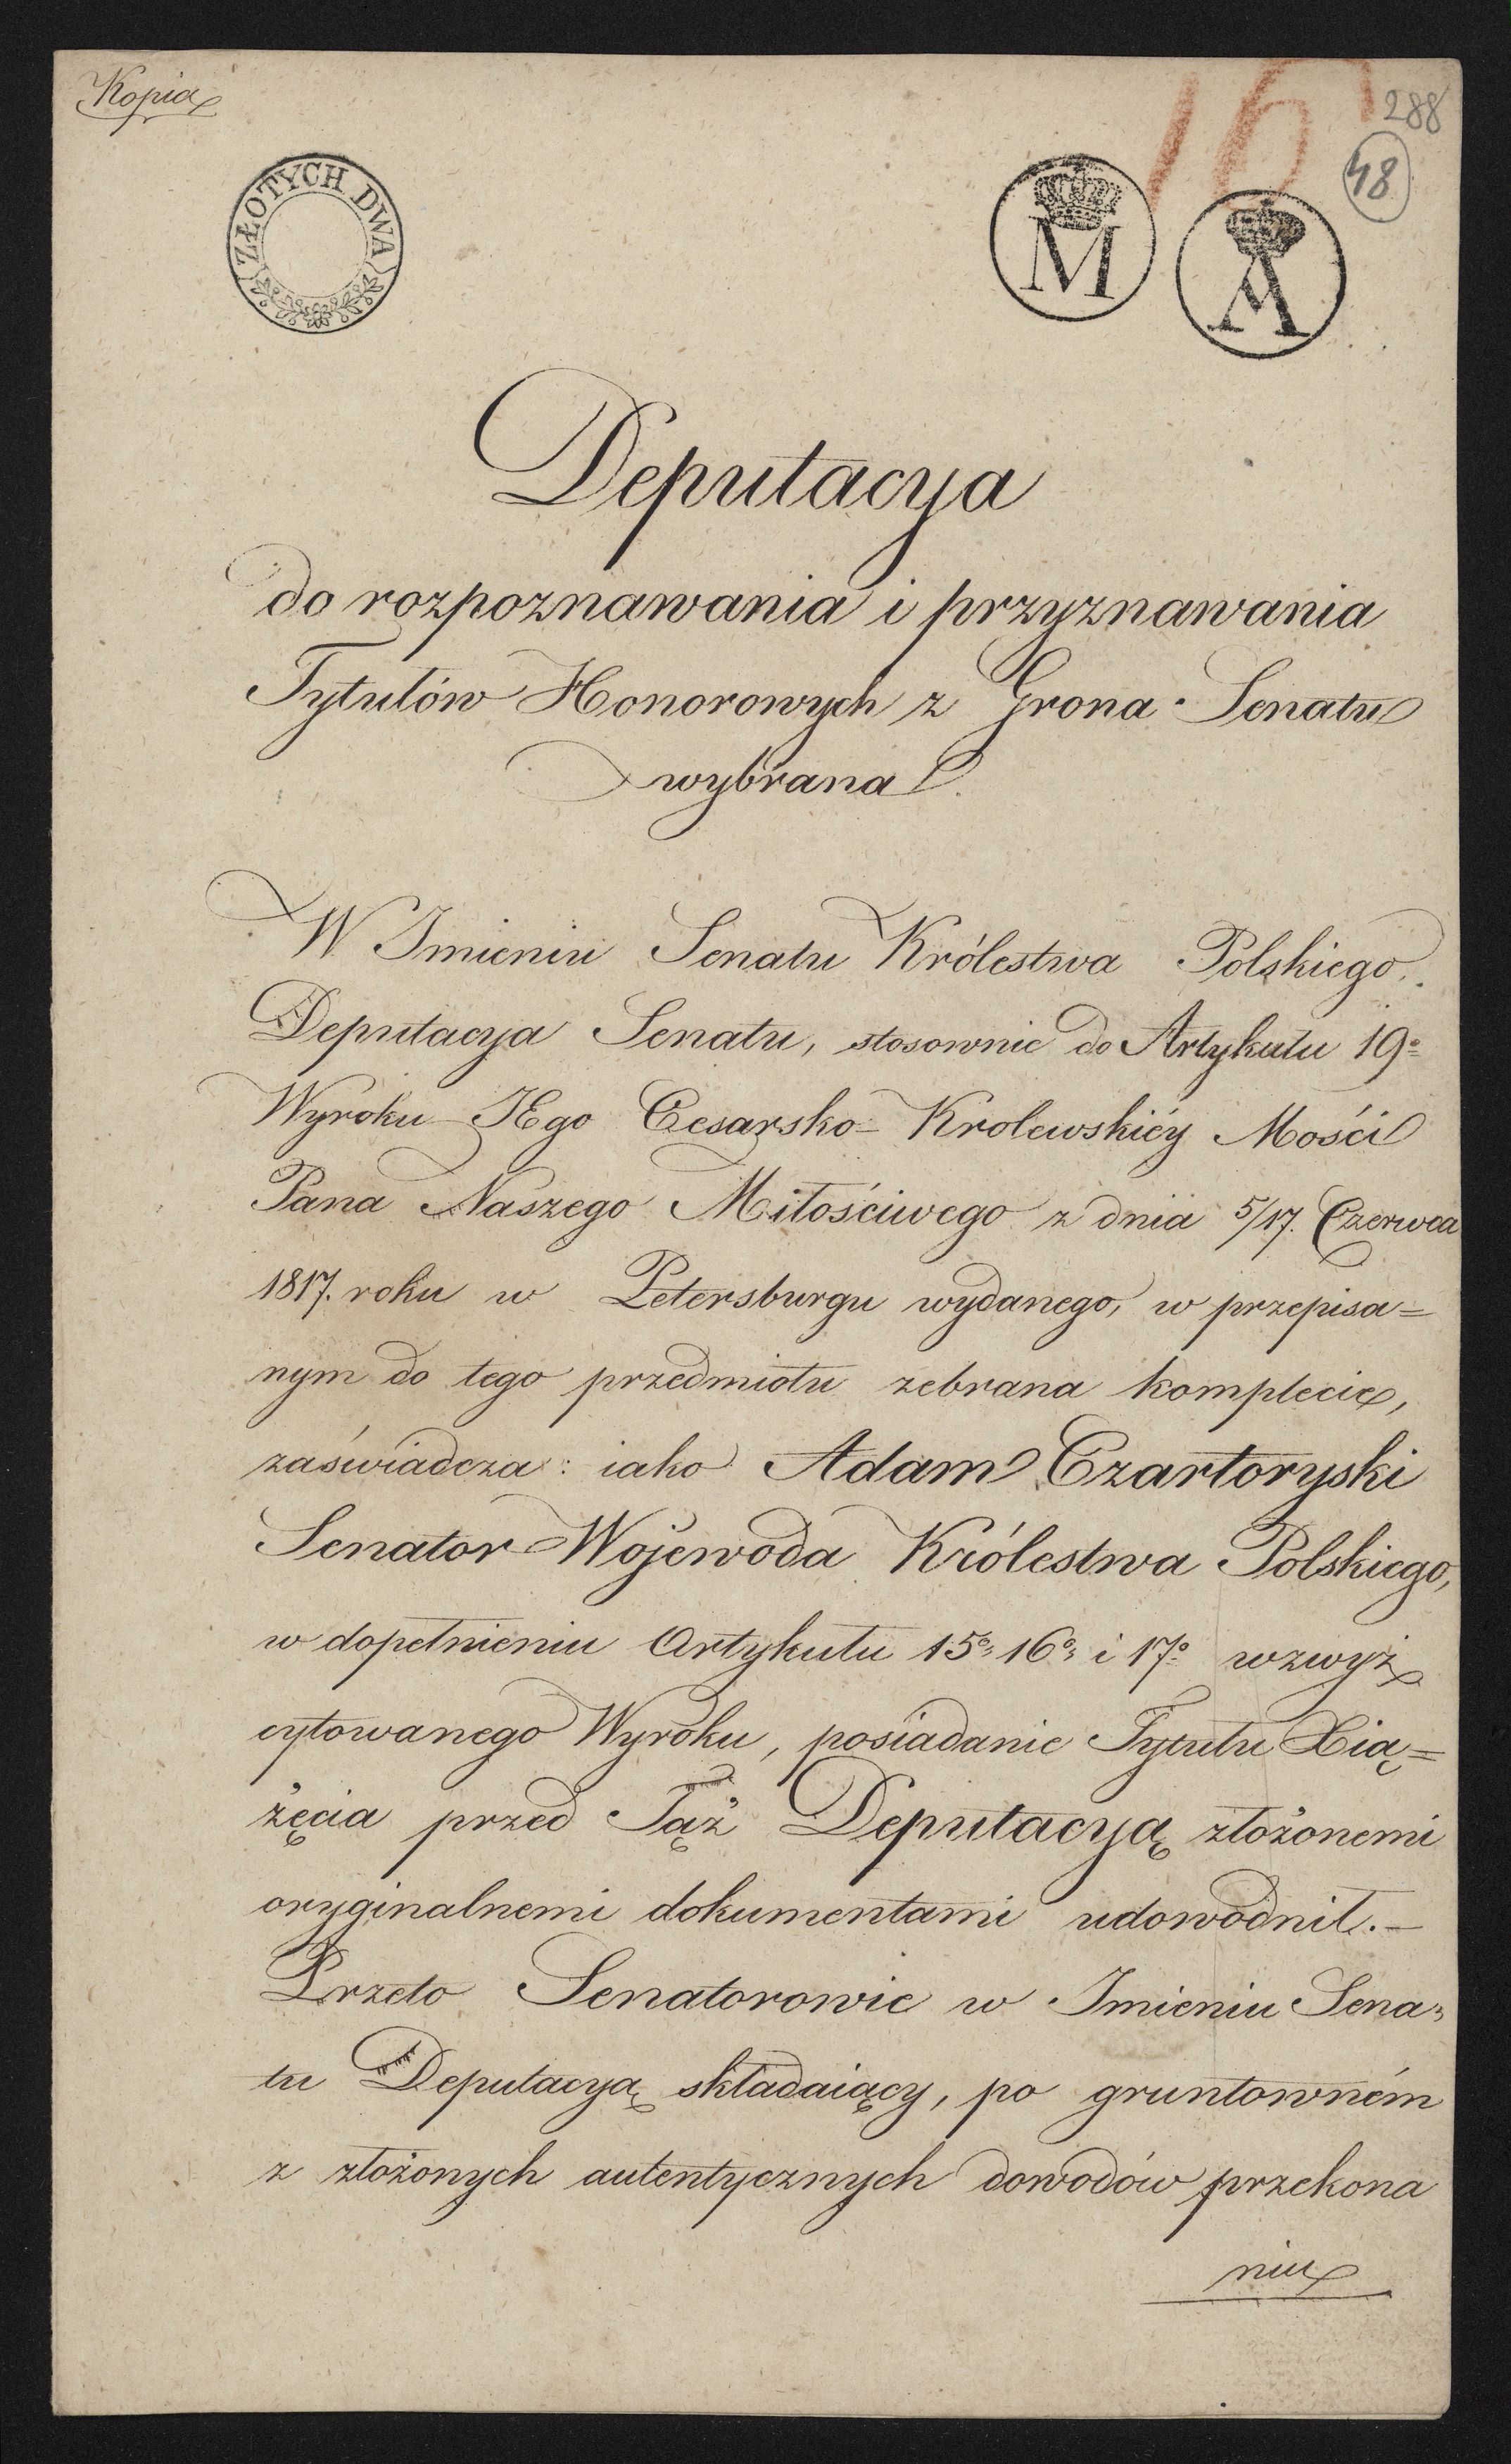 Kopia
288
16
48
ZŁOTYCH DWA
M
A
Deputacya
do rozpoznawania i przyznawania
Tytułów Honorowych z Grona Senatu
wybrana.
W Imieniu Senatu Królestwa Polskiego.
Deputacya Senatu, stosownie do Artykułu 19º
Wyroku JEgo Cesarsko-Krolewskiéy Mości
Pana Naszego Miłościwego z dnia 5/17. Czerwca
1817. roku w Petersburgu wydanego, w przepisa=
nym do tego przedmiotu zebrana komplecie,
zaświadcza: iako Adam Czartoryski
Senator Wojewoda Królestwa Polskiego,
w dopełnieniu Artykułu 15º 16º i 17º wzwyż
cytowanego Wyroku, posiadanie Tytułu Xią=
żęcia przed Tąż Deputacyą złożonemi
oryginalnemi dokumentami udowodnił.—
Przeto Senatorowie w Imieniu Sena=
tu Deputacyą składaiący, po gruntowném
z złożonych autentycznych dowodów przekona
niu